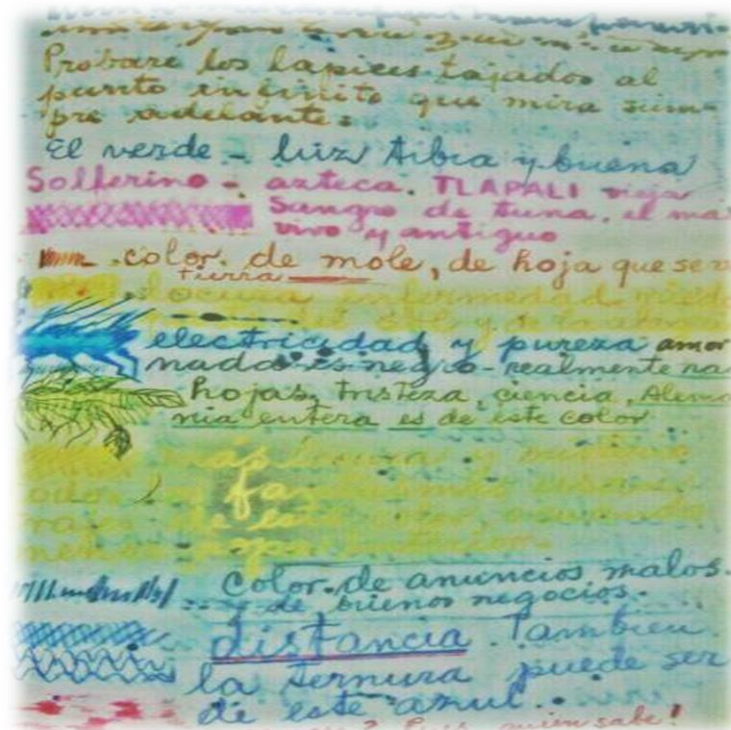 Probaré los lapices tajados al
punto infinito que mira siem-
pre adelante:
El verde - luz tibia y buena
Solferino - azteca. TLAPALI vieja
sangre de tuna, el más
vivo y antiguo
color de mole, de hoja que se va
tierra
locura enfermedad miedo
parte del sol y de la alegría
electricidad y pureza amor
nada es negro - realmente na
hojas, tristeza, ciencia, Alema
nia entera es de este color
más locura y misterio
todos los fantasmas usan
trajes de este color,
color de anuncios malos
y de buenos negocios.
distancia. Tambien
la ternura puede ser
de este azul.
quien sabe!